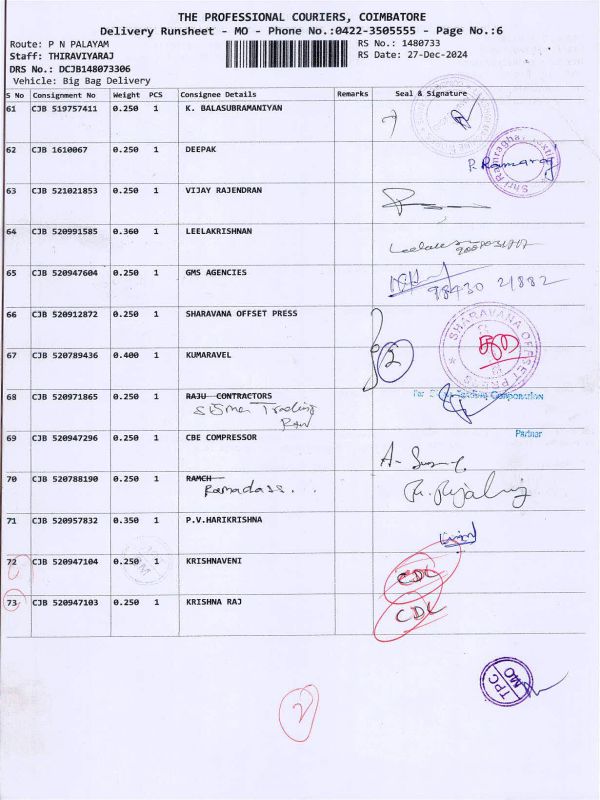 THE PROFESSIONAL COURIERS, COIMBATORE
Delivery Runsheet - MO - Phone No.:0422-3505555 - Page No.:6
Route: P N PALAYAM RS No.: 1480733
Staff: THIRAVIYARAJ RS Date: 27-Dec-2024
DRS No.: DCJB148073306
Vehicle: Big Bag Delivery
S No Consignment No Weight PCS Consignee Details Remarks Seal & Signature
61 CJB 519757411 0.250 1 K. BALASUBRAMANIYAN
62 CJB 1610067 0.250 1 DEEPAK
63 CJB 521021853 0.250 1 VIJAY RAJENDRAN
64 CJB 520991585 0.360 1 LEELAKRISHNAN
65 CJB 520947604 0.250 1 GMS AGENCIES
98430 21882
66 CJB 520912872 0.250 1 SHARAVANA OFFSET PRESS
SHARAVANA OFFSET PRESS
67 CJB 520789436 0.400 1 KUMARAVEL
68 CJB 520971865 0.250 1 RAJU CONTRACTORS
Trading
Corporation
Partner
69 CJB 520947296 0.250 1 CBE COMPRESSOR
70 CJB 520788190 0.250 1 RAMCH
Ramadass..
71 CJB 520957832 0.350 1 P.V.HARIKRISHNA
72 CJB 520947104 0.250 1 KRISHNAVENI
CDC
73 CJB 520947103 0.250 1 KRISHNA RAJ
CDC
TPC
MO
2